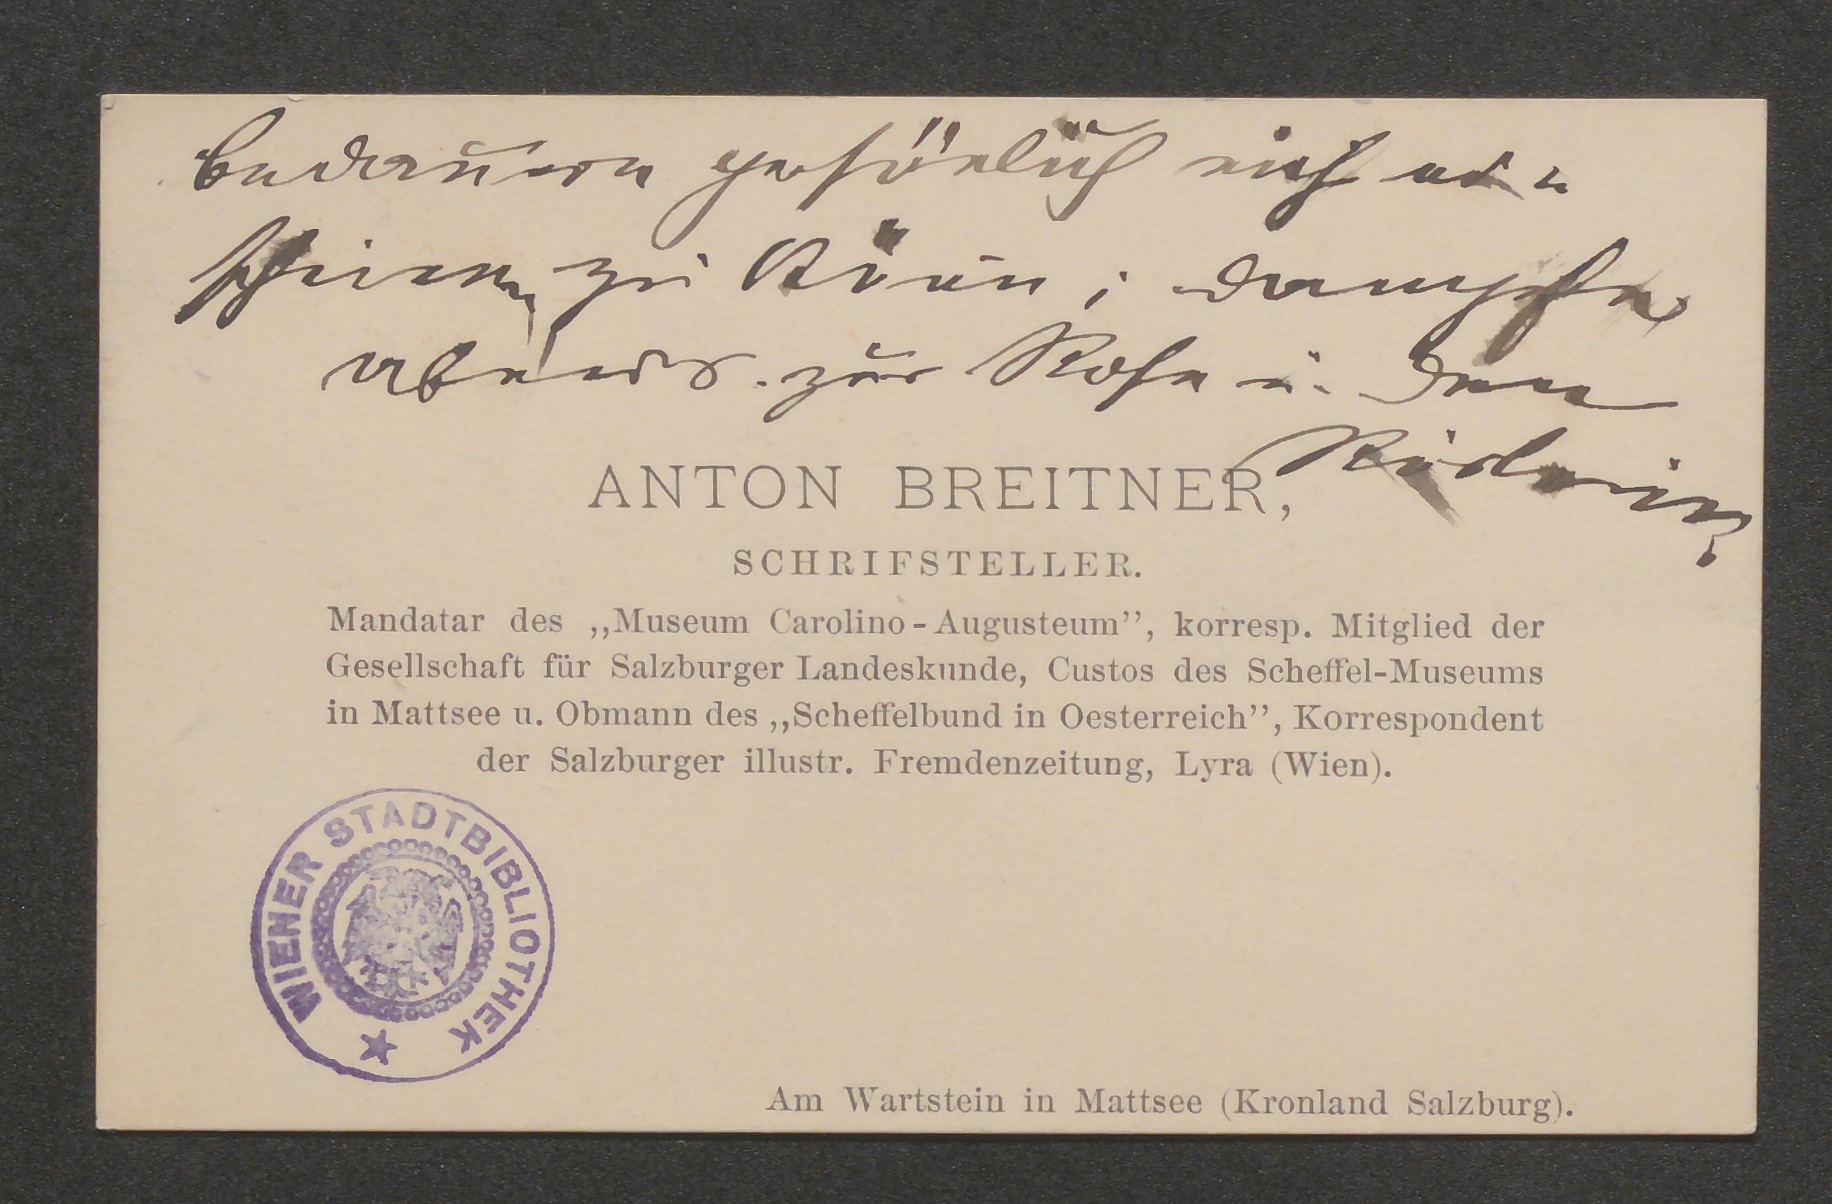 bedauern persönlich nicht er-
scheinen zu können; dampfe
abends zur Rose u.
ANTON BREITNER,
SCHRIFSTELLER.
Mandatar des „Museum Carolino-Augusteum”, korresp. Mitglied der
Gesellschaft für Salzburger Landeskunde, Custos des Scheffel-Museums
in Mattsee u. Obmann des „Scheffelbund in Oesterreich”, Korrespondent
der Salzburger illustr. Fremdenzeitung, Lyra (Wien).
WIENER STADTBIBLIOTHEK
Am Wartstein in Mattsee (Kronland Salzburg).